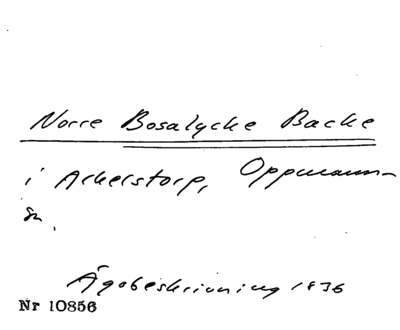 Norre Bosalycke Backe
i Arkelstorp, Oppmanna-
sn.
Ägobeskrivning 1836
Nr 10856